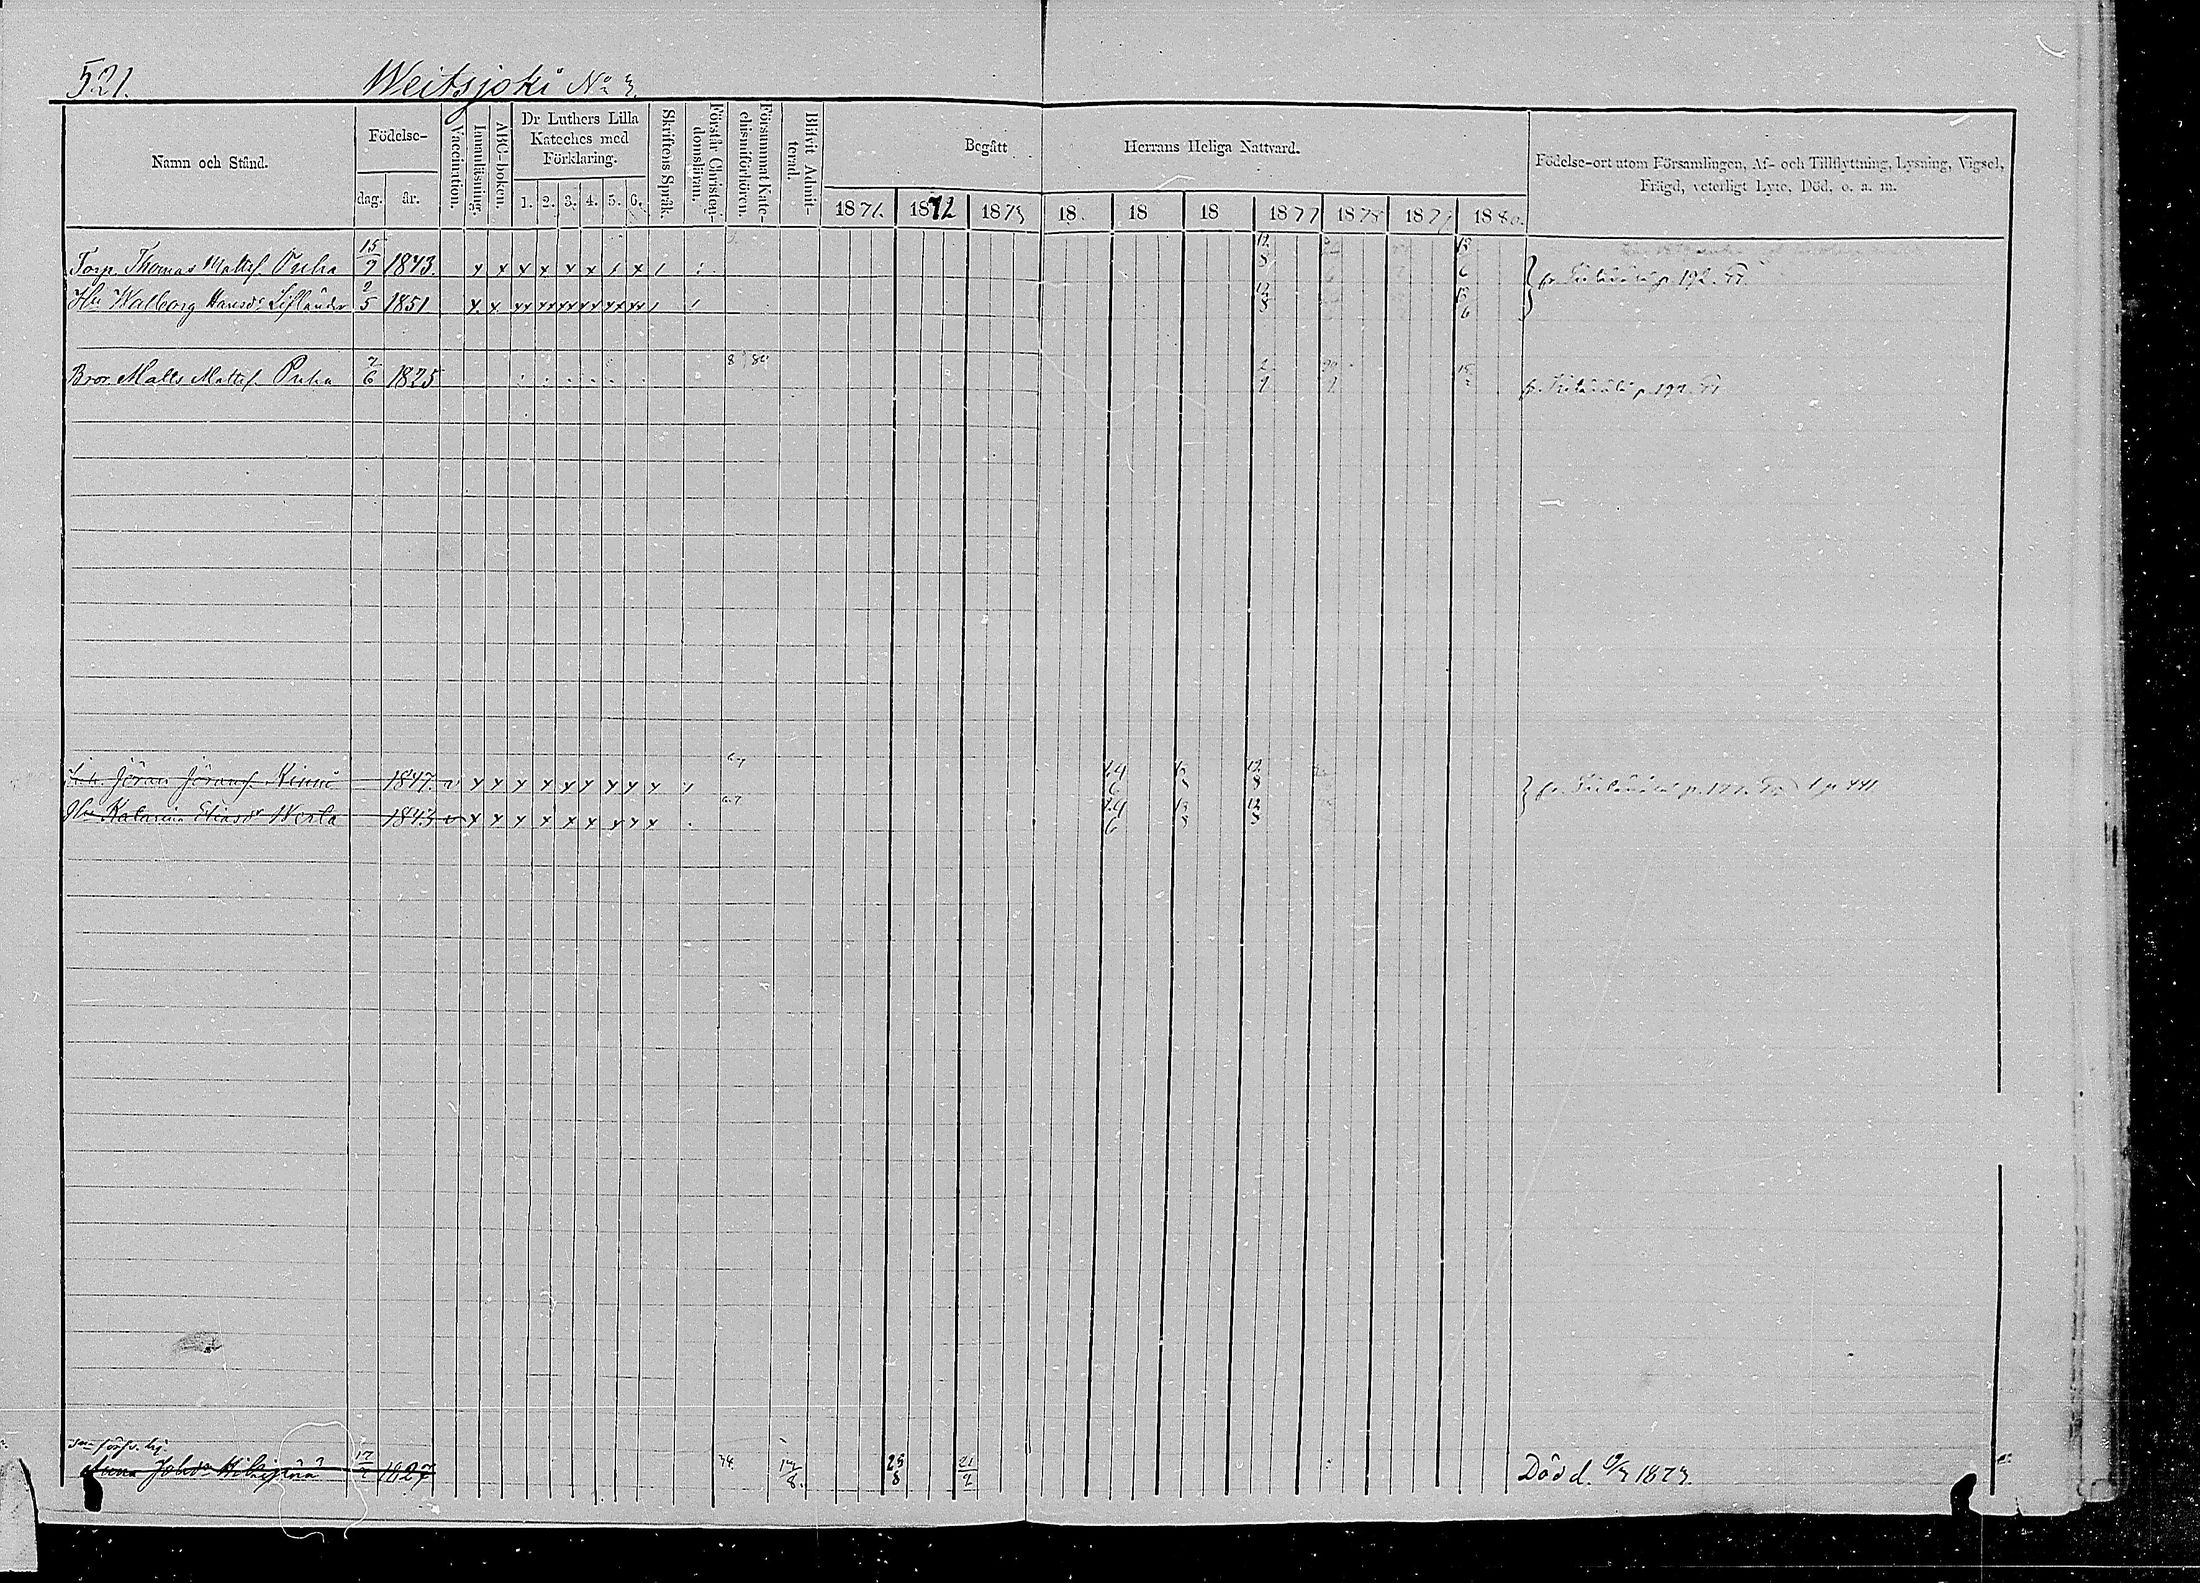 521. Weitsjoki No 3.
Namn och Stånd. Födelse- dag. år. Vaccination. Innanläsning. ABC-boken. Dr Luthers Lilla Kateches med Förklaring. 1. 2. 3. 4. 5. 6. Skriftens Språk. Förstår Christendomsläran. Försummat Katechismiförhören. Blifvit Admitterad. Begått Herrans Heliga Nattvard. 1871. 1872 1873 18 18 18 1877 1878 1879 1880. Födelse-ort utom Församlingen, Af- och Tillflyttning, Lysning, Vigsel, Frägd, veterligt Lyte, Död, o. a. m.
Torp. Thomas Mattsf. Puha 15/9 1843. x x x x x x x x 12/8 13/6 p. 192.
Hu Walborg Hansdr Lifländer 2/5 1851 x x xx xx xx xx xx xx 12/8 13/6
Bror Matts Mattsf. Puha 7/6 1825 8 80 p. 192.
Jöran Jöransf. 1847. v x x x x x x x x x 14/6 12/8 p. 441
Hu Katarina Eliasdr 1843 v x x x x x x x x x 14/6 12/8
Anna Johdr 1827 74. 17/8. 25/8 21/2 Död. 1873.